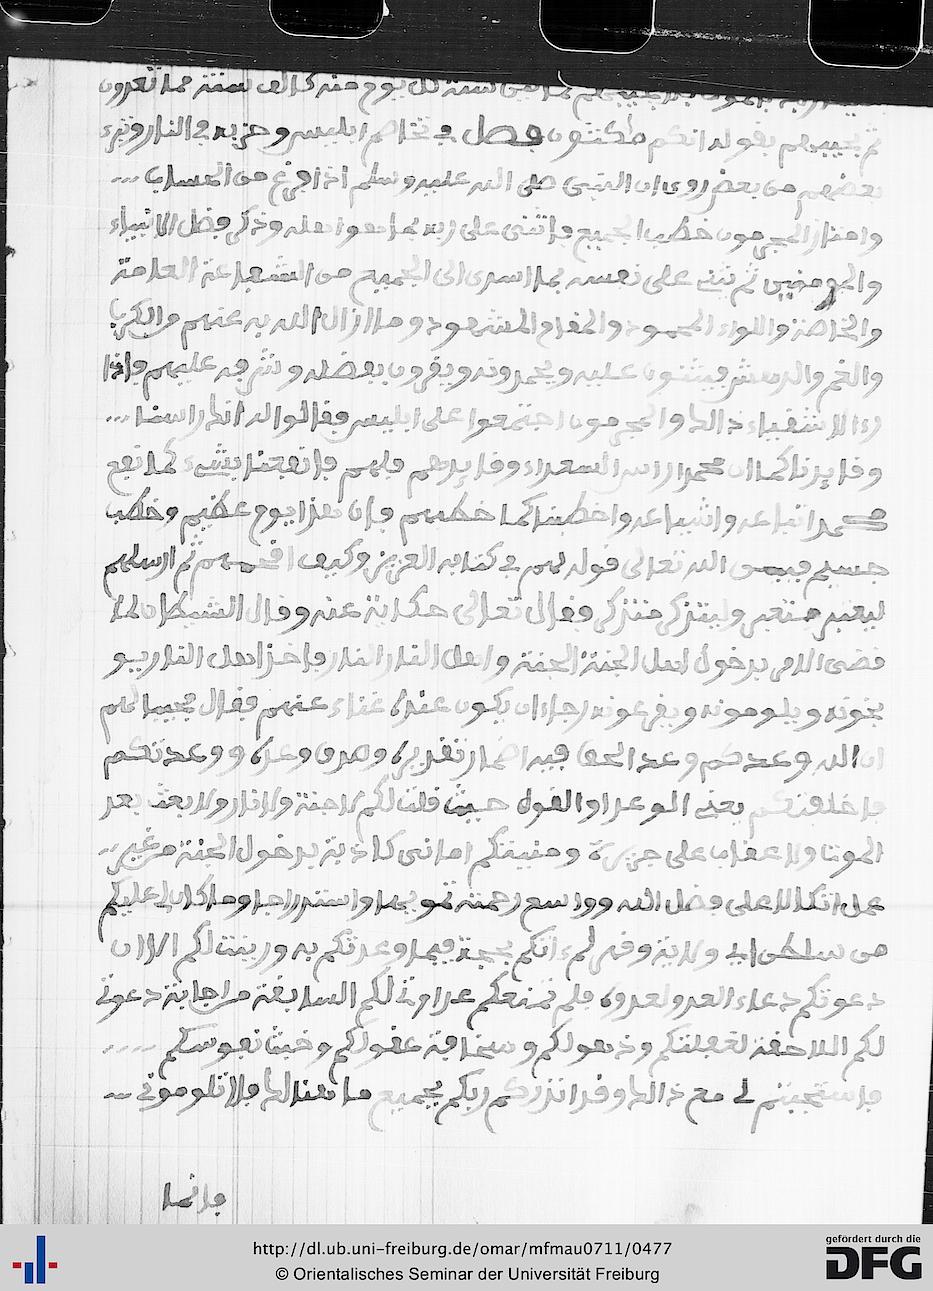 ثم يجيبهم بقوله انكم مكثون فصل في تخاصم ابليس وحزبه في النار وتبرء
بعضهم من بعض روى ان النبي صلى الله عليه وسلم اذا فرغ من الحساب
وامتاز المجرمون خطب الجميع فاثنى على ربه بما هو اهله وذكر فضل الانبياء
والمومنين ثم يثني على نفسه بما اسدى الى الجميع من الشفاعة العامة
والخاصة واللواء المحمود والمقام المشهود وما ازال الله به عنهم من الكرب
والغم والدهش فيثنون عليه ويحمدونه ويقرون بفضله وشرفه عليهم فاذا
رءا الاشقياء ذالك والمجرمون اجتمعوا على ابليس وقالوا له انك راسنا
وقايدنا كما ان محمدا راس السعداء وقايدهم فانفعنا بشيء كما نفع
محمد اتباعه واشياعه واخطبنا كما خطبهم فان هذا يوم عظيم وخطب
جسيم فبين الله تعالى قوله لهم في كتابه العزيز وكيف افحمهم ثم ارسلهم
ليعتبر معتبر وليتذكر متذكر فقال تعالى حكاية عنه وقال الشيطان لما
قضي الامر بدخول اهل الجنة الجنة واهل النار النار فاخذ اهل النار يو
بخونه ويلومونه ويقرعونه رجاء ان يكون عنده غناء عنهم فقال مجيبا لهم
ان الله وعدكم وعد الحق فيه اضمار تقديره وصدق وعده ووعدتكم
فاخلفتكم يعني الوعد او القول حيث قلت لكم لا جنة ولا نار ولا بعث بعد
الموت ولا عقاب على جريرة ومنيتكم اماني كاذبة بدخول الجنة من غير
عمل اتكالا على فضل الله وواسع رحمته تمويها واستدراجا وما كان لي عليكم
من سلطان اي ولاية وقهر لم ءاتكم بحجة فيما وعدتكم به وزينت لكم الا ان
دعوتكم دعاء العدو لعدوه فلم تمنعكم عداوتي لكم السابقة من اجابة دعوتي
لكم اللاحقة لغفلتكم وذهولكم وسخافة عقولكم وخبث نفوسكم
فاستجبتم لي مع ذالك وقد انذركم ربكم بجميع ما هنالك فلا تلوموني
فانما
http://dl.ub.uni-freiburg.de/omar/mfmau0711/0477
© Orientalisches Seminar der Universität Freiburg
gefördert durch die
DFG